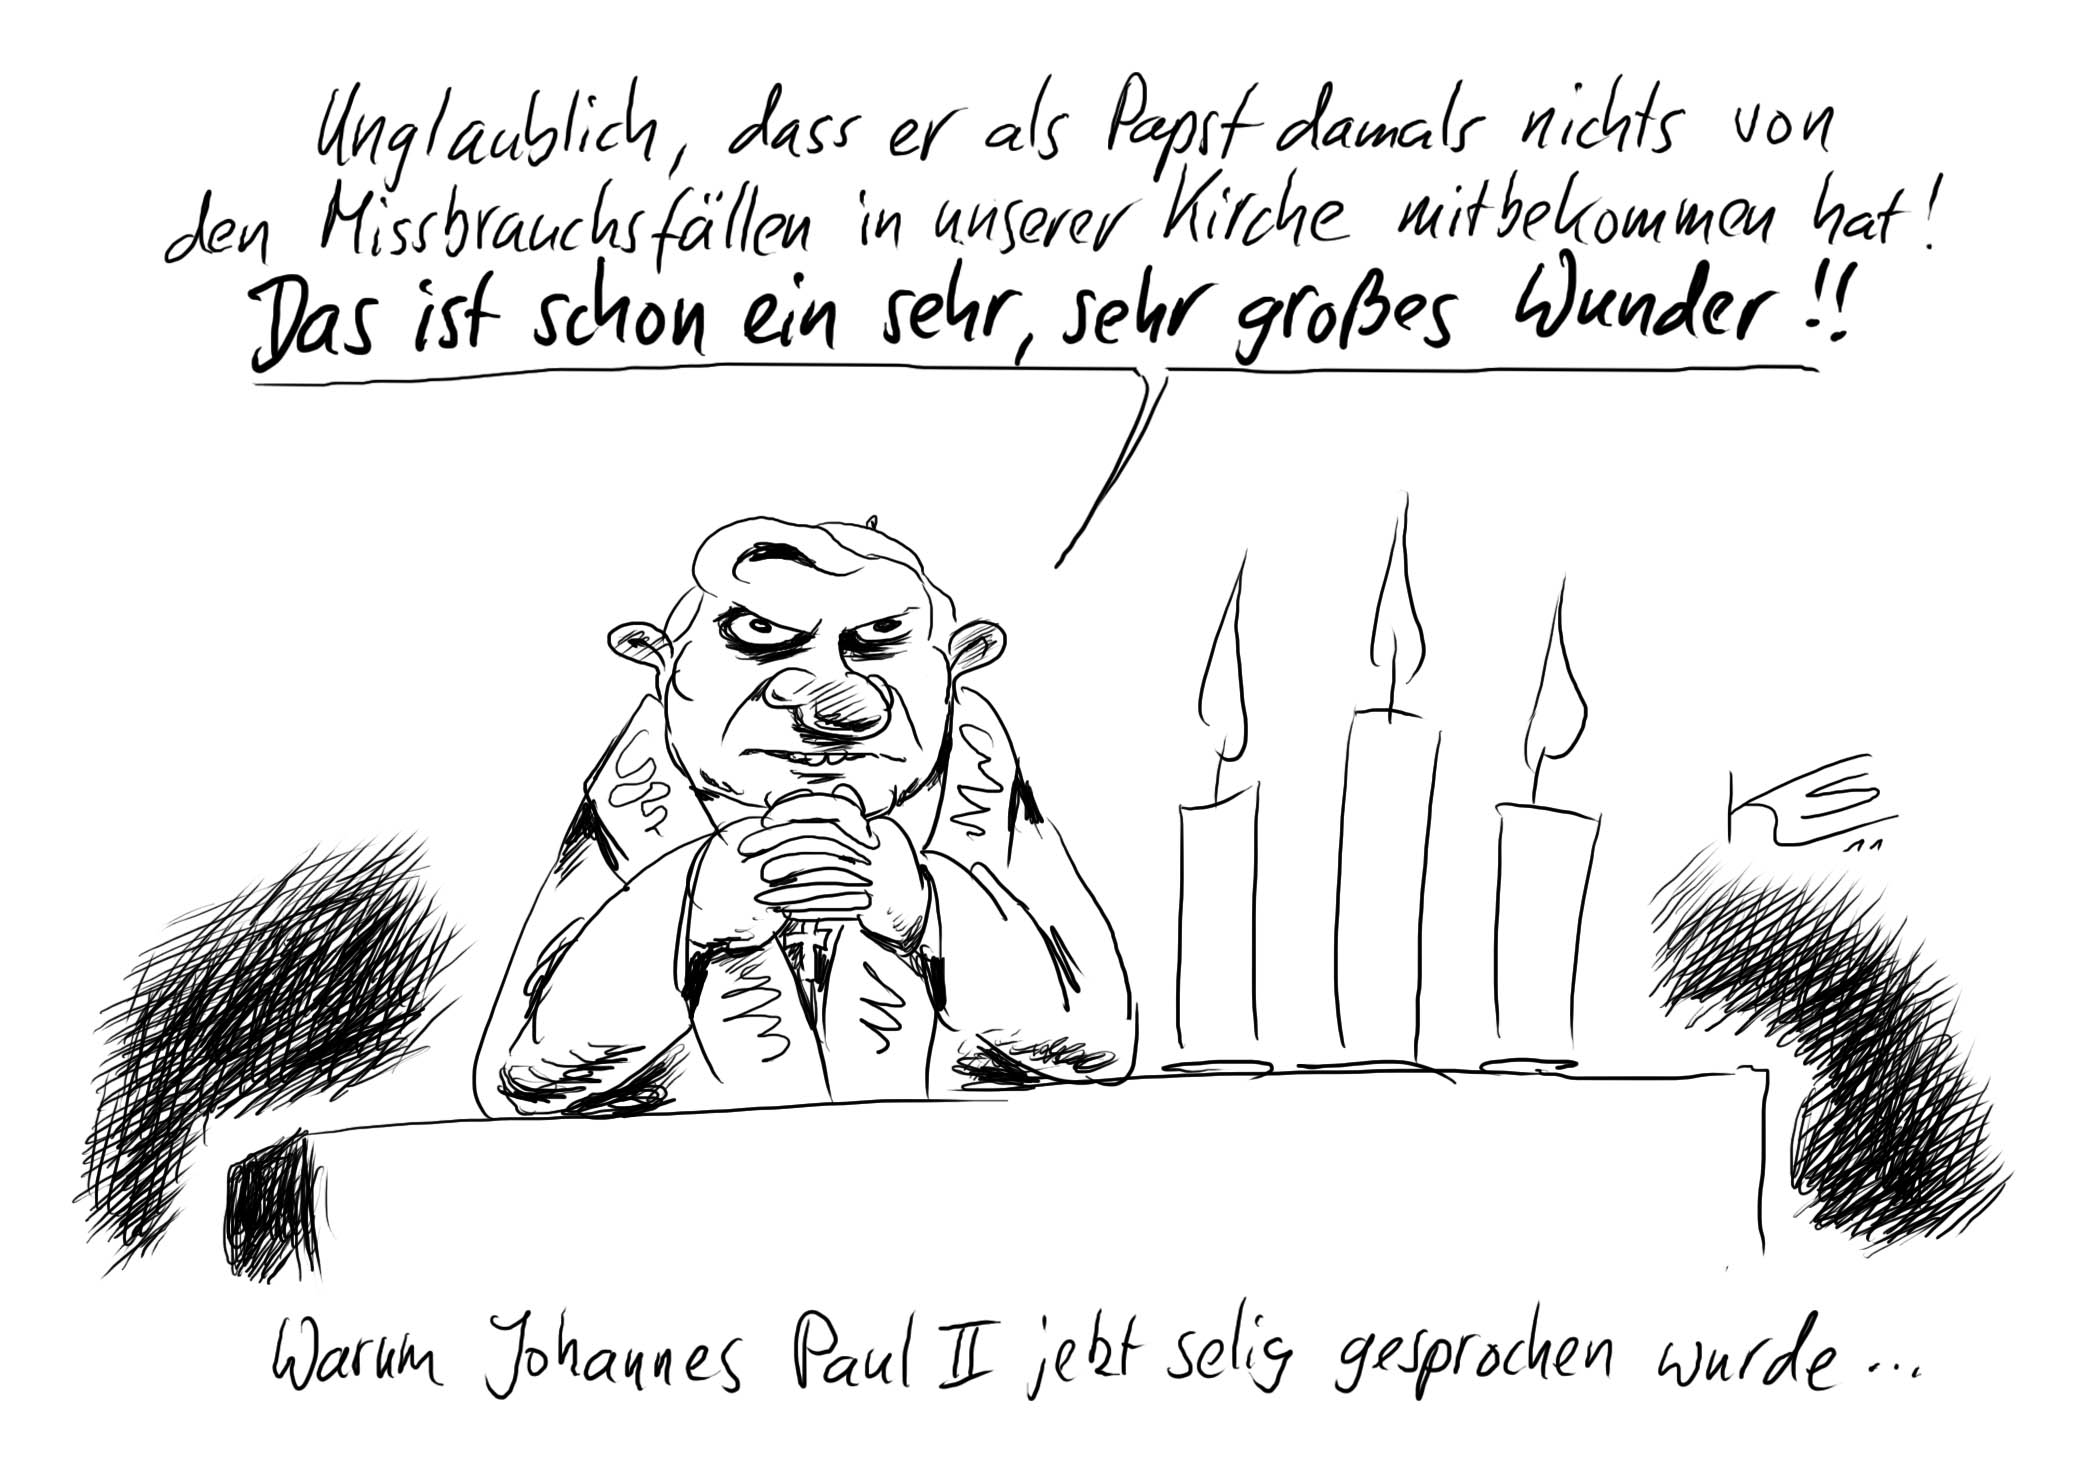 Unglaublich, dass er als Papst damals nichts von
den Missbrauchsfällen in unserer Kirche mitbekommen hat!
Das ist schon ein sehr, sehr großes Wunder!!
Warum Johannes Paul II jetzt selig gesprochen wurde...